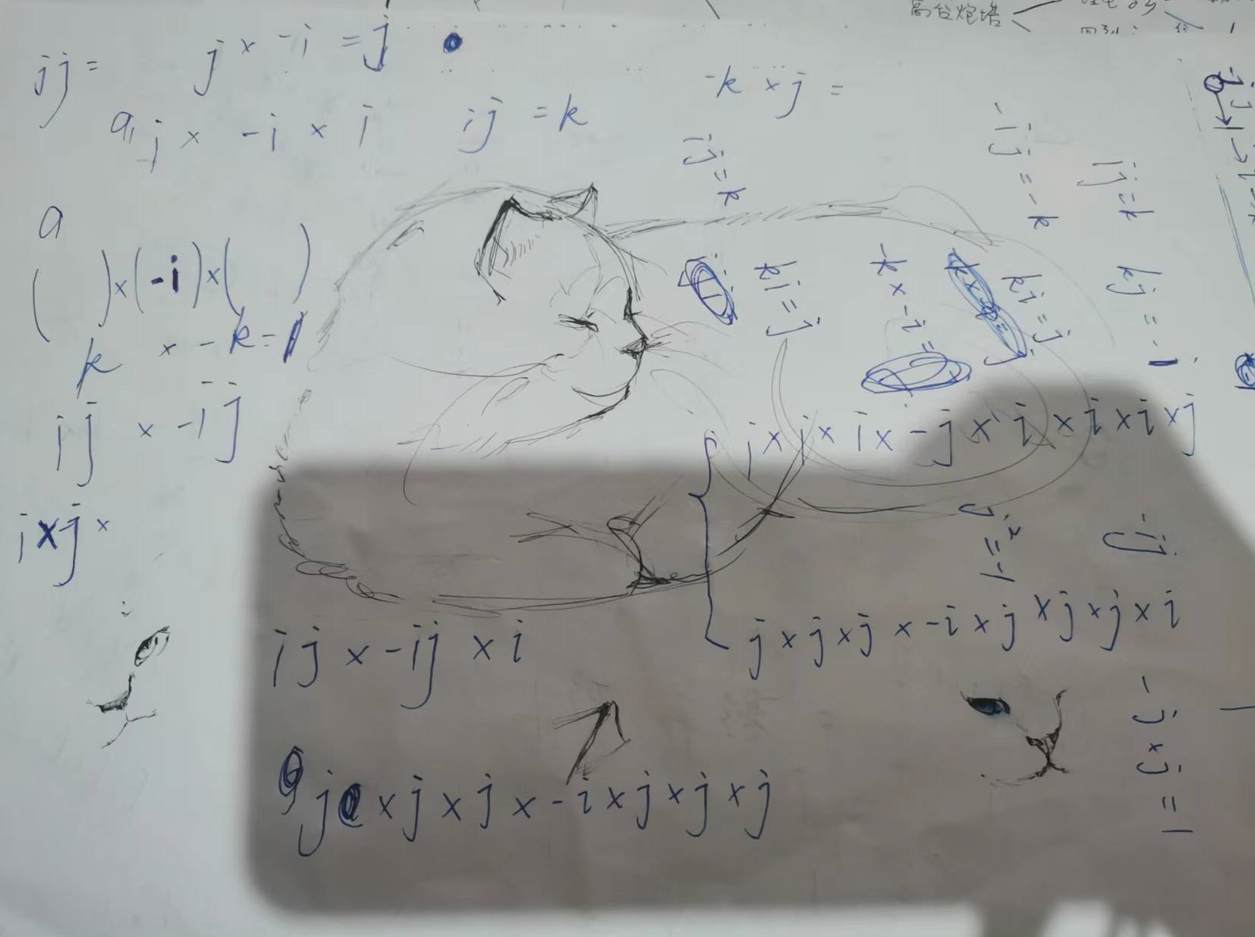 高台炮塔
jj =
j × -i = j
a, j × -i × i
ij = k
-k × j =
ij = k
-ij = -k
ij = k
a
(   ) × (-i) × (   )
k × -k = 1
ki = j
k × -i =
ki = j
kj = -i
ij × -ij
j × j × i × -j × i × i × i × j
i × j ×
j² = -1
ij × -ij × i
j × j × j × -i × j × j × j × i
-j × j = 1
j × j × j × -i × j × j × j